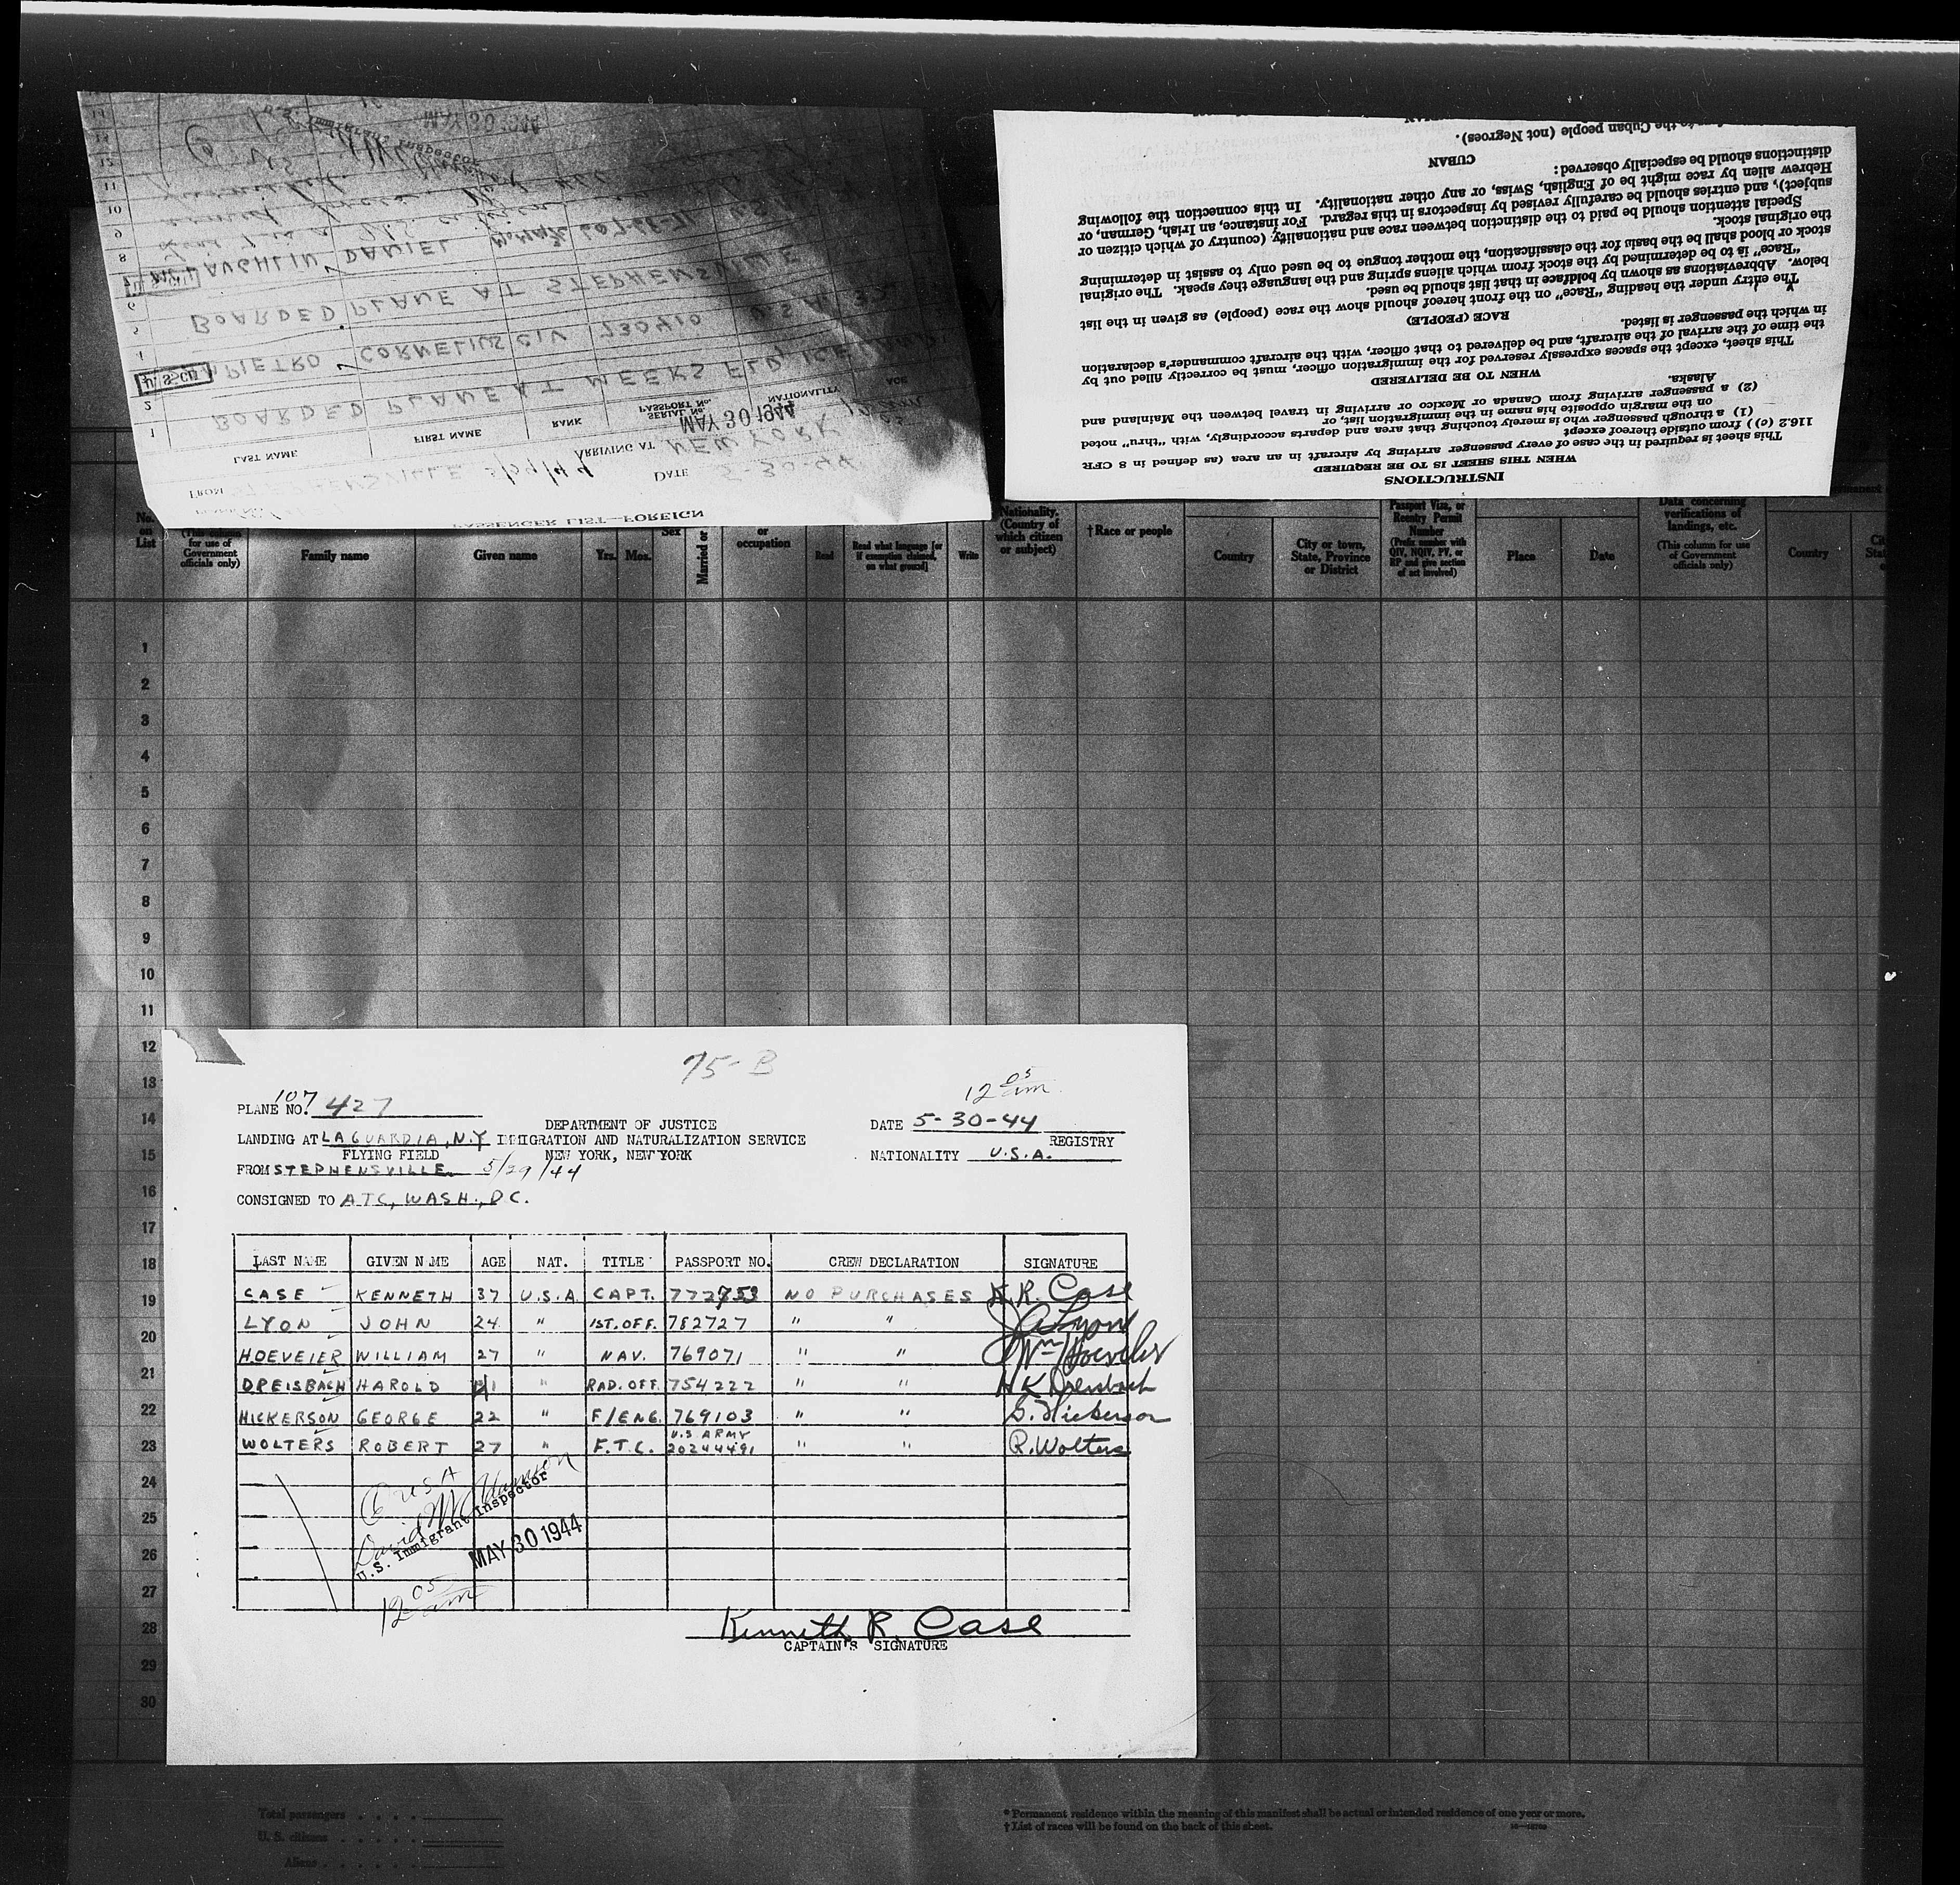 PASSENGER LIST—FOREIGN
FROM STEPHENSVILLE 5/29/44 ARRIVING AT NEW YORK DATE 5-30-44
MAY 30 1944
LAST NAME FIRST NAME RANK SERIAL No. PASSPORT No. NATIONALITY AGE
1 BOARDED PLANE AT MEEKS FLD, ICELAND
2
U.S. CIT. PIETRO CORNELIUS CIV 730410 U.S.A.
4
5 BOARDED PLANE AT STEPHENSVILLE
6
U.S. CIT. McLAUGHLIN, DANIEL
8
9
10
11
12
U.S. Immigrant Inspector
MAY 30 1944
INSTRUCTIONS
WHEN THIS SHEET IS TO BE REQUIRED
This sheet is required in the case of every passenger arriving by aircraft in an area (as defined in 8 CFR
116.2 (c)) from outside thereof except
(1) a through passenger who is merely touching that area and departs accordingly, with "thru" noted
on the margin opposite his name in the immigration list, or
(2) a passenger arriving from Canada or Mexico or arriving in travel between the Mainland and
Alaska.
WHEN TO BE DELIVERED
This sheet, except the spaces expressly reserved for the immigration officer, must be correctly filled out by
the time of the arrival of the aircraft, and be delivered to that officer, with the aircraft commander's declaration
in which the passenger is listed.
RACE (PEOPLE)
The entry under the heading "Race" on the front hereof should show the race (people) as given in the list
below. Abbreviations as shown by boldface in that list should be used.
"Race" is to be determined by the stock from which aliens spring and the language they speak. The original
stock or blood shall be the basis for the classification, the mother tongue to be used only to assist in determining
the original stock.
Special attention should be paid to the distinction between race and nationality (country of which citizen or
subject), and entries should be carefully revised by inspectors in this regard. For instance, an Irish, German, or
Hebrew alien by race might be of English, Swiss, or any other nationality. In this connection the following
distinctions should be especially observed:
CUBAN
to the Cuban people (not Negroes).
No. on List
(This column for use of Government officials only)
Family name
Given name
Yrs. Mos.
Sex
Married or
or occupation
Read
Read what language [or if exemption claimed, on what ground]
Write
Nationality. (Country of which citizen or subject)
† Race or people
Country
City or town, State, Province or District
Passport Visa, or Reentry Permit Number
(Prefix number with QIV, NQIV, PV, or RP and give section of act involved)
Place
Date
Data concerning verifications of landings, etc.
(This column for use of Government officials only)
Country
1
2
3
4
5
6
7
8
9
10
11
12
13
14
15
16
17
18
19
20
21
22
23
24
25
26
27
28
29
30
75-B
12 05 am
107
PLANE NO. 427
DEPARTMENT OF JUSTICE
DATE 5-30-44
LANDING AT LAGUARDIA, N.Y. IMMIGRATION AND NATURALIZATION SERVICE
REGISTRY
FLYING FIELD NEW YORK, NEW YORK
NATIONALITY U.S.A.
FROM STEPHENSVILLE 5/29/44
CONSIGNED TO ATC, WASH., D C.
LAST NAME GIVEN NAME AGE NAT. TITLE PASSPORT NO. CREW DECLARATION SIGNATURE
CASE KENNETH 37 U.S.A. CAPT. 772753 NO PURCHASES K.R. Case
LYON JOHN 24 " 1ST. OFF. 782727 " " JA Lyon
HOEVELER WILLIAM 27 " NAV. 769071 " " Wm Hoeveler
DREISBACH HAROLD " RAD. OFF. 754222 " " H K Dreisbach
HICKERSON GEORGE 22 " F/ENG. 769103 " " G. Hickerson
WOLTERS ROBERT 27 " F.T.C. U.S ARMY 20244491 " " R. Wolters
6 USA
U.S. Immigrant Inspector
MAY 30 1944
12 05 am
Kenneth R. Case
CAPTAIN'S SIGNATURE
Total passengers . . . .
U. S. citizens . . . . .
Aliens . . . . . .
* Permanent residence within the meaning of this manifest shall be actual or intended residence of one year or more.
† List of races will be found on the back of this sheet.